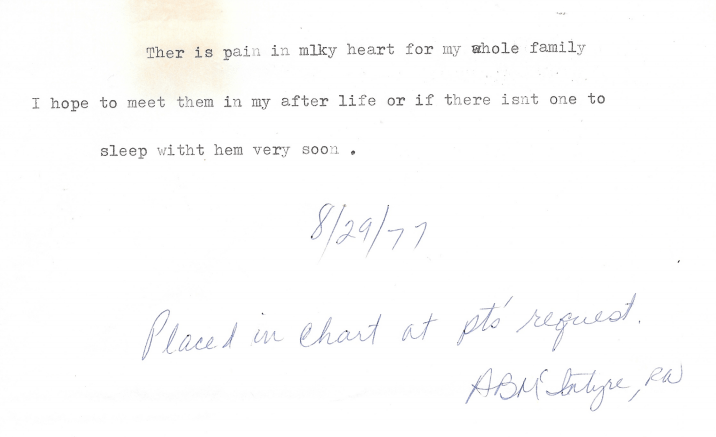 Ther is pain in mlky heart for my whole family
I hope to meet them in my after life or if there isnt one to
sleep witht hem very soon .
8/29/77
Placed in chart at pts' request.
ABMcIntyre, RN